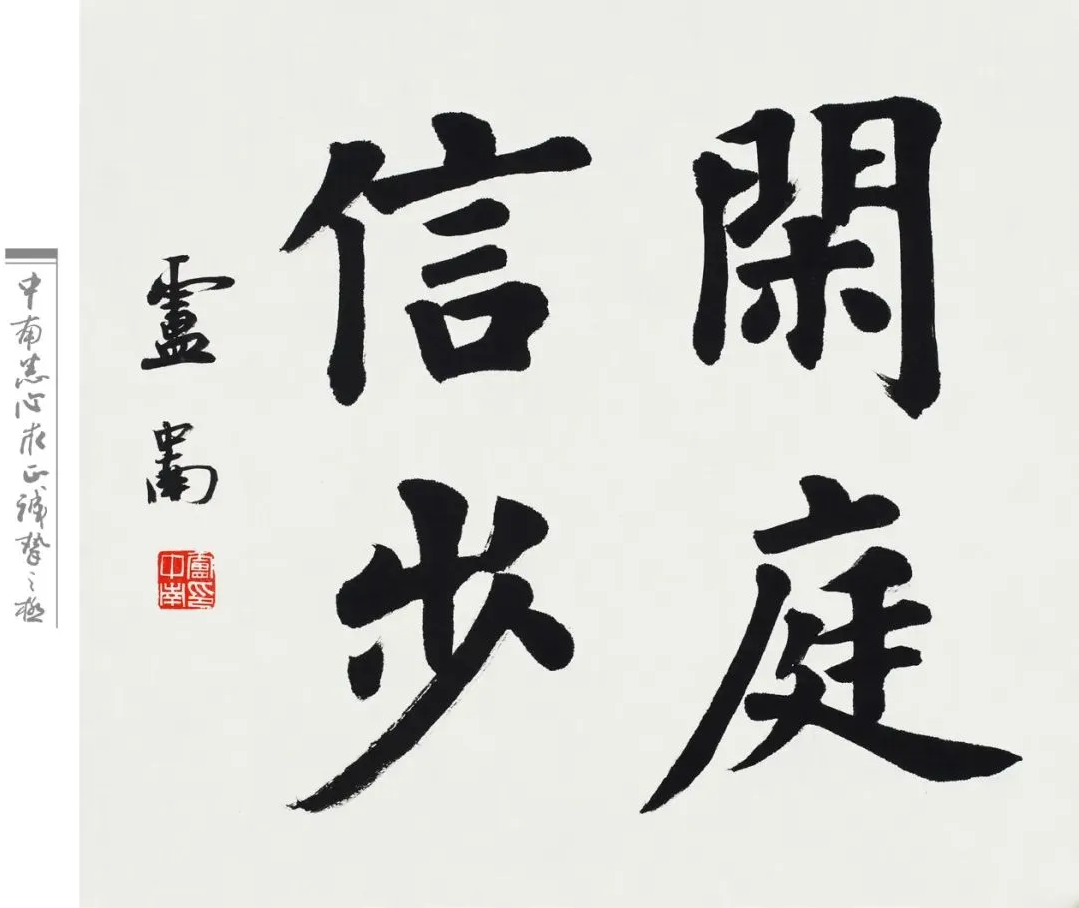 閑庭
信步
盧中南
盧印
中南
中南悉心求正誠摯之極